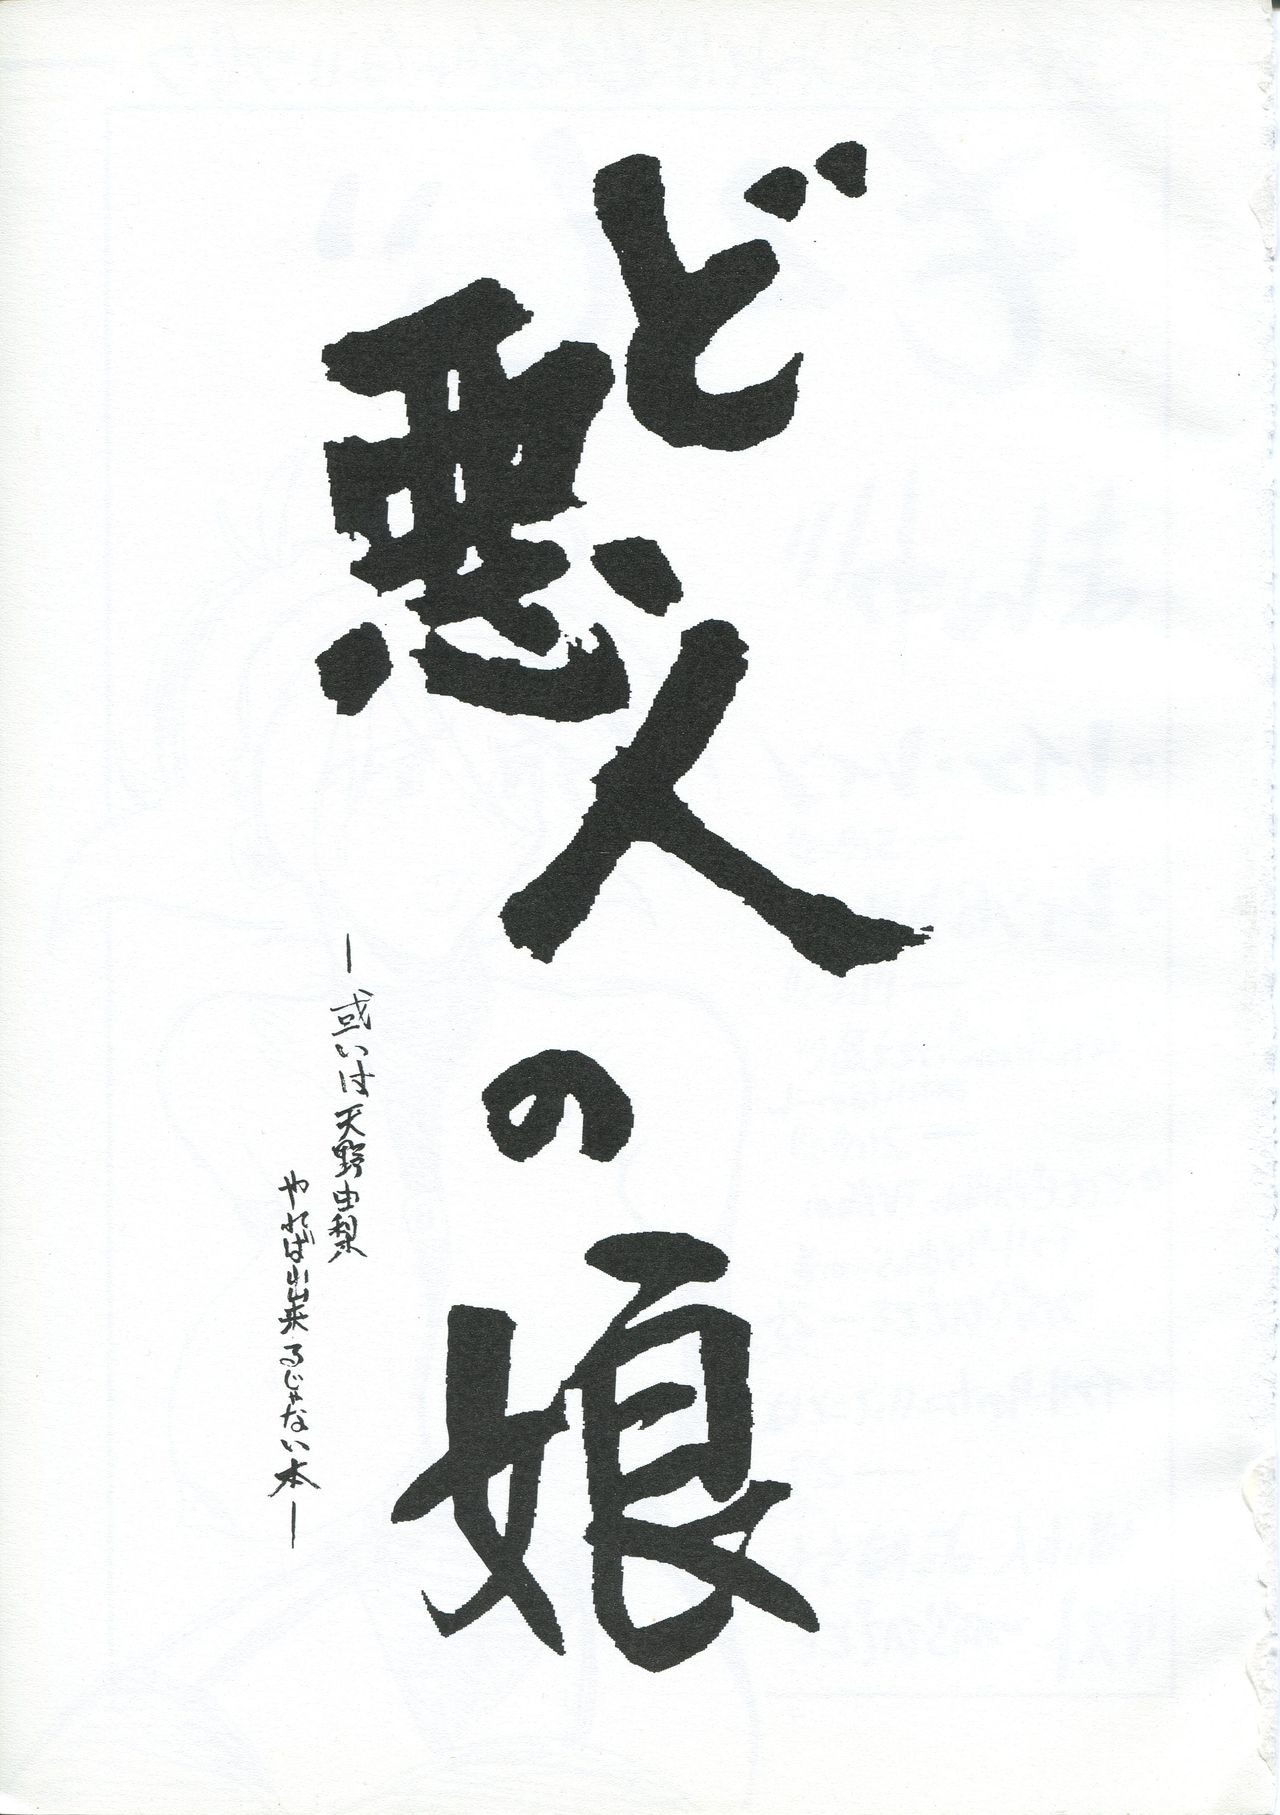 ど悪人の娘
―或いは天野由梨
やれば出来るじゃない本―